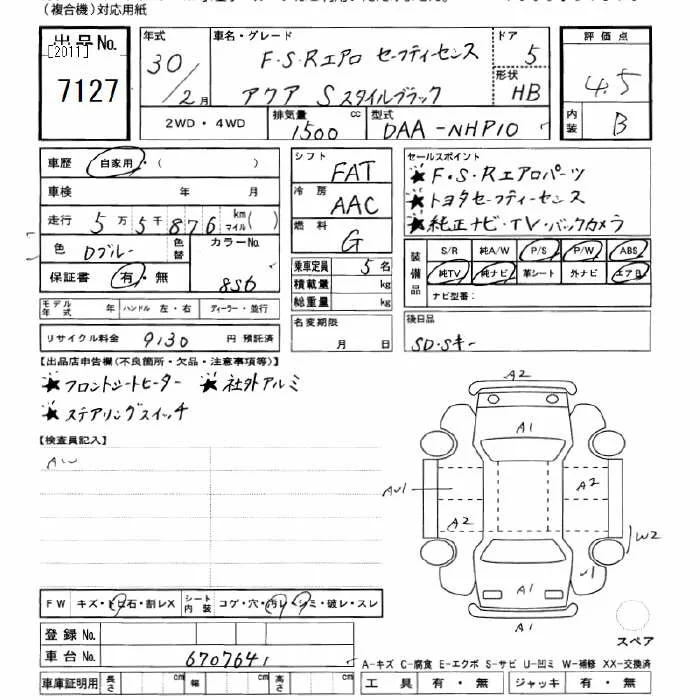 (複合機)対応用紙
出品No. [2011] 7127
年式 30/2月
車名・グレード F・S・Rエアロ セーフティーセンス
アクア Sスタイルブラック
ドア 5
形状 HB
評価点 4.5
内装 B
2WD・4WD 排気量 1500 cc 型式 DAA-NHP10
車歴 自家用・( )
車検 年 月
走行 5万5千876 km マイル( )
色 Dブルー 色替 カラーNo. 8S6
保証書 有・無
シフト FAT
冷房 AAC
燃料 G
乗車定員 5名
積載量 kg
総重量 kg
セールスポイント
★F・S・Rエアロパーツ
★トヨタセーフティーセンス
★純正ナビ・TV・バックカメラ
装備品 S/R 純A/W P/S P/W ABS
純TV 純ナビ 革シート 外ナビ エアB
ナビ型番:
モデル年式 年 ハンドル 左・右 ディーラー・並行
リサイクル料金 9130 円 預託済
名変期限 月 日
後日品 SD・Sキー
【出品店申告欄(不良箇所・欠品・注意事項等)】
★フロントシートヒーター ★社外アルミ
★ステアリングスイッチ
【検査員記入】
AW
A2
A1
A2
A2
W2
A1
A1
スペア
FW キズ・トビ石・割レX シート内装 コゲ・穴・汚レ・シミ・破レ・スレ
登録No.
車台No. 6707641
A-キズ C-腐食 E-エクボ S-サビ U-凹ミ W-補修 XX-交換済
車庫証明用 長さ cm 幅 cm 高さ cm
工具 有・無 ジャッキ 有・無